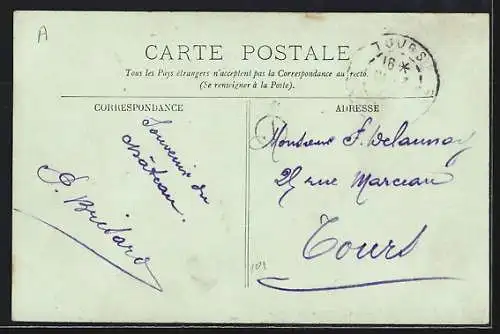 A
CARTE POSTALE
Tous les Pays étrangers n'acceptent pas la Correspondance au recto.
(Se renseigner à la Poste).
TOURS
16 *
CORRESPONDANCE
Souvenir du
château.
ADRESSE
Monsieur F. Delaunay
25 rue Marceau
Tours